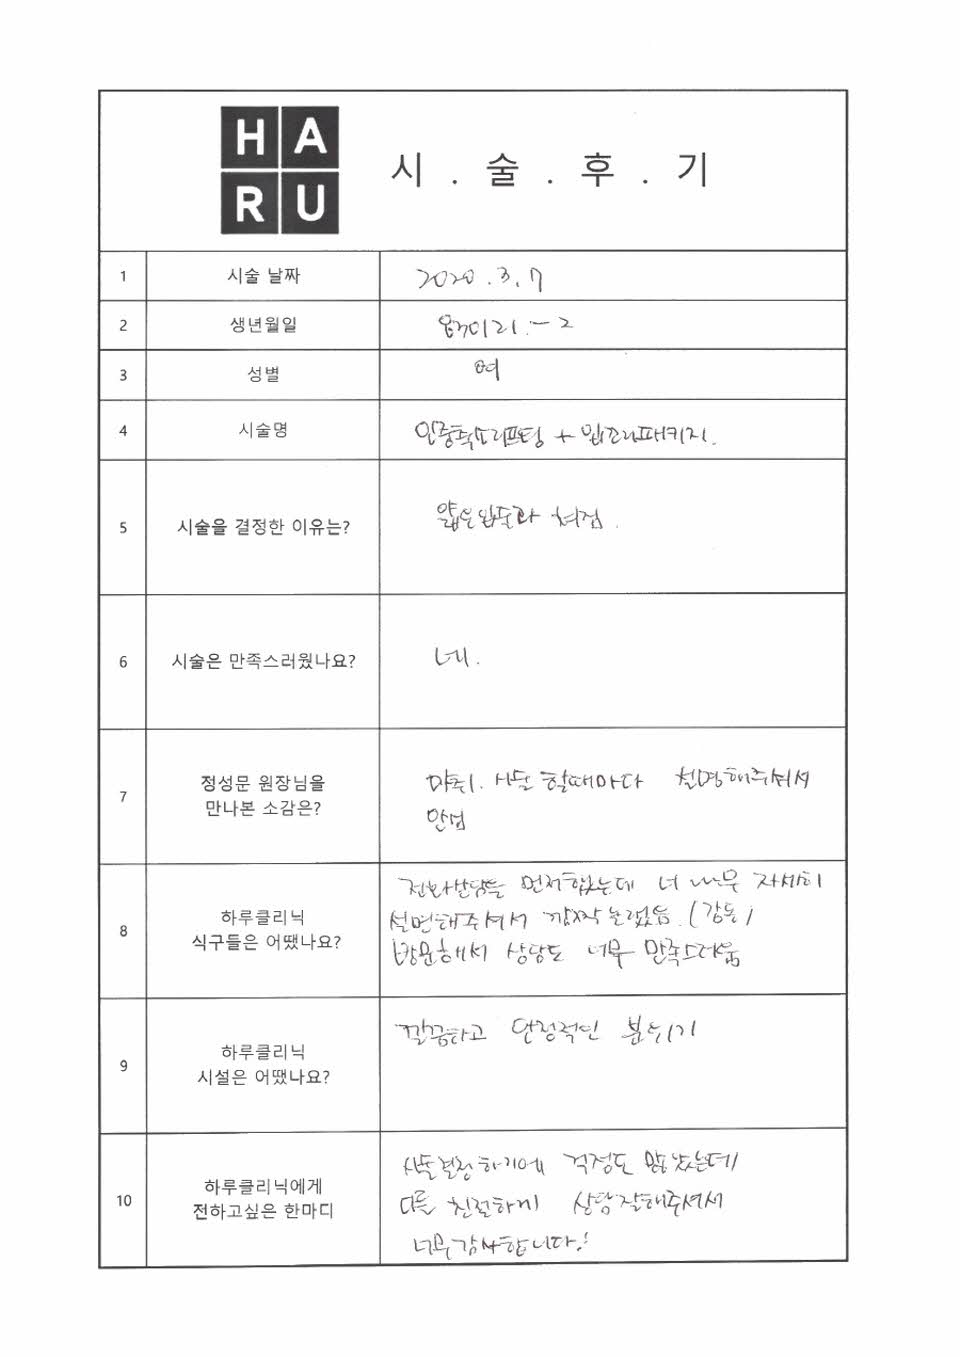 HA
RU
시.술.후.기
1 시술 날짜 2020.3.7
2 생년월일
3 성별 여
4 시술명 인중축소리프팅 + 입꼬리패키지.
5 시술을 결정한 이유는? 얇은입술과 처짐.
6 시술은 만족스러웠나요? 네.
7 정성문 원장님을
만나본 소감은?
마취. 시술 할때마다 설명해주셔서
안심
8 하루클리닉
식구들은 어땠나요?
전화상담을 먼저했는데 너 너무 자세히
설명해주셔서 깜짝놀랐음. (감동)
방문해서 상담도 너무 만족스러움
9 하루클리닉
시설은 어땠나요?
깔끔하고 안정적인 분위기
10 하루클리닉에게
전하고싶은 한마디
시술결정하기에 걱정도 많았는데
다들 친절하게 상담잘해주셔서
너무감사합니다.!